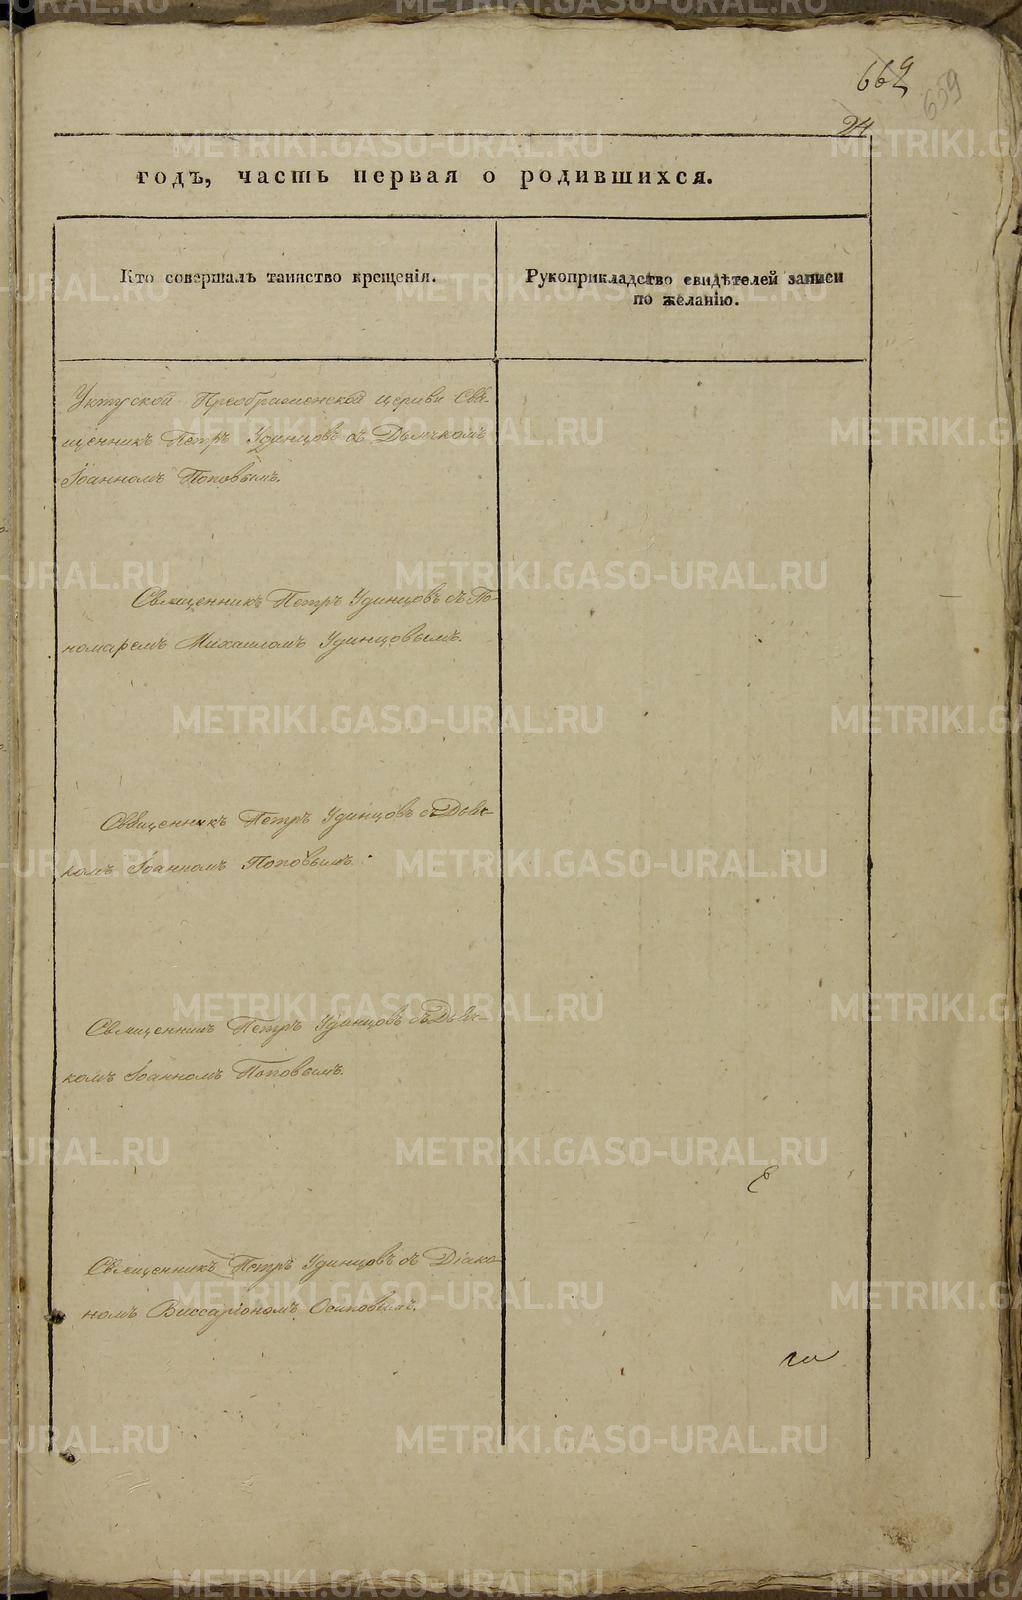 669
659
24
годъ, часть первая о родившихся.
Кто совершалъ таинство крещенія.
Рукоприкладство свидѣтелей записи
по желанію.
Уктуской Преображенской церкви Свя-
щенникъ Петръ Удинцовъ съ Дьячкомъ
Іоанномъ Поповымъ.
Священникъ Петръ Удинцовъ съ По-
номаремъ Михаиломъ Удинцовымъ.
Священникъ Петръ Удинцовъ съ Дьяч-
комъ Іоанномъ Поповымъ.
Священникъ Петръ Удинцовъ съ Дьяч-
комъ Іоанномъ Поповымъ.
Священникъ Петръ Удинцовъ съ Діако-
номъ Виссаріономъ Осиповымъ.
METRIKI.GASO-URAL.RU